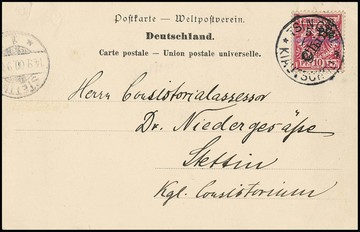 Postkarte — Weltpostverein.
Deutschland.
Carte postale — Union postale universelle.
10
Herrn Consistorialassessor
Dr. Niedergesäße
Stettin
Kgl. Consistorium